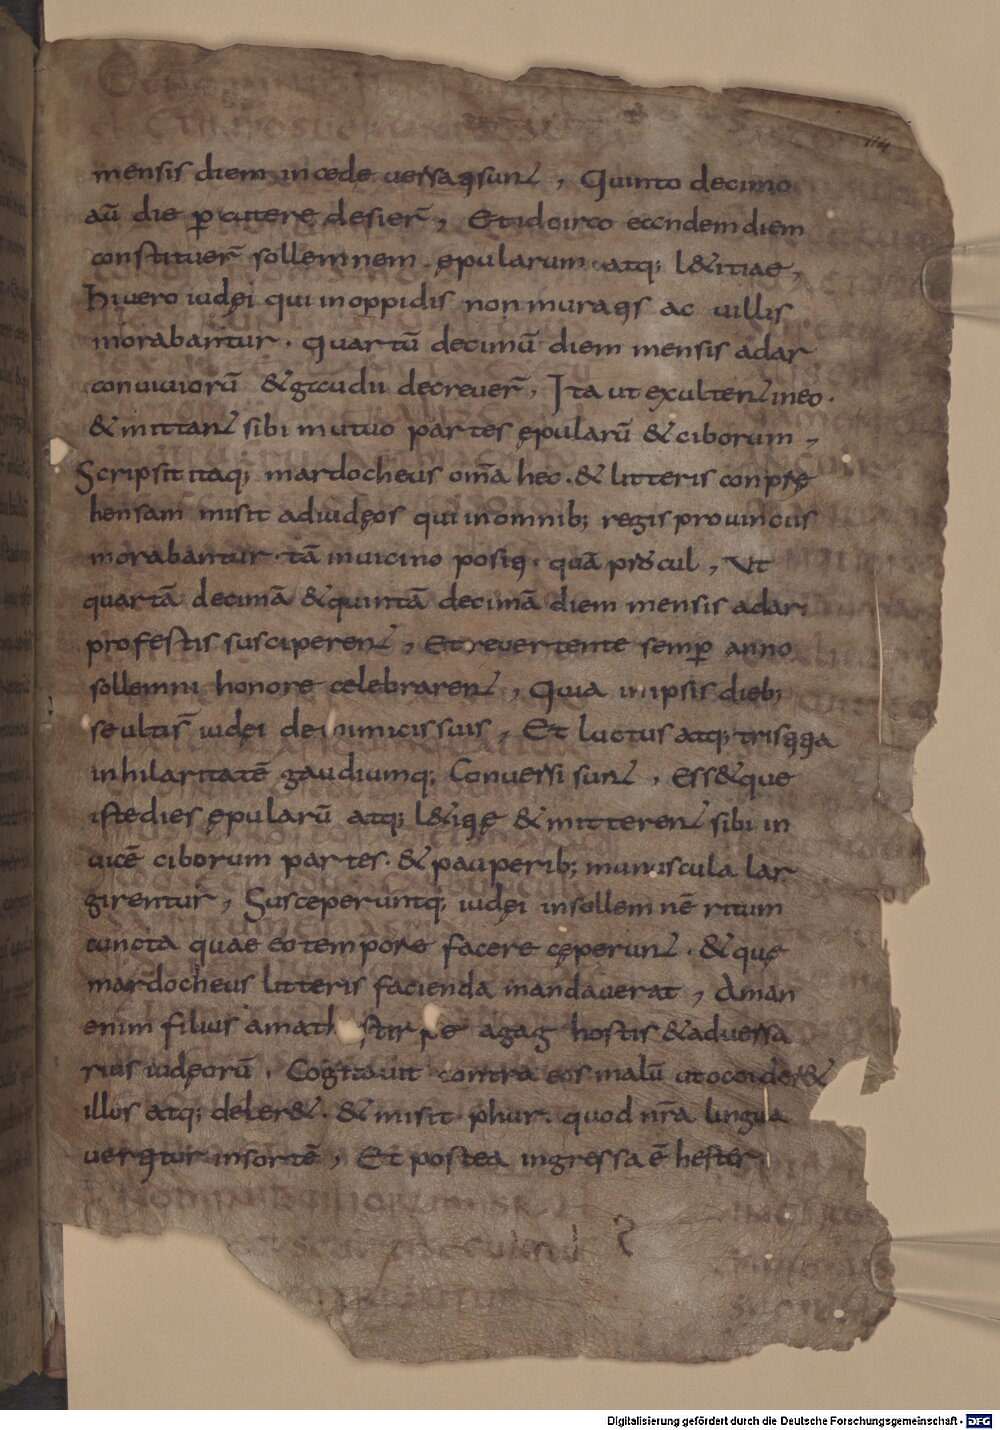 114
mensis diem in cede versaqsunt, Quinto decimo
aū die ꝑcutere desier̄, Et idcirco eccndem diem
constituer̄ sollemnem ępularum atq; l&itiae,
hi vero iudęi qui in oppidis non muraqs ac uillis
morabantur. quartū decimū diem mensis adar
conuiuiorū &gccudii decreuer̄, Ita ut exultent in eo.
&mittant sibi mutuo partes ępularū &ciborum,
Scripsit itaq; mardocheus om̄a hec. & litteris conp̄rę
hensam misit ad iudęos qui in omnib; regis prouinciis
morabantur tā in uicino posiq. quā procul, Ut
quartā decimā &quintā decimā diem mensis adar
pro festis susciperent, Et reuertente semꝑ anno
sollemni honore celebrarent, Quia in ipsis dieb;
se ultis̄ iudei de inimicis suis, Et luctus atq; trisqqa
in hilaritatē gaudiumq; Conuersi sunt, Ess&que
iste dies ępularū atq; l&iqę &mitterent sibi in
uicē ciborum partes. &pauperib; munuscula lar
girentur, Susceperuntq; iudęi in sollemnē ritum
cuncta quae eo tempore facere cęperunt. &quę
mardocheus litteris facienda mandauerat, Aman
enim filius amath stirpe agag hostis &aduersa
rius iudęorū. Cogitauit contra eos malū ut occider&
illos atq; deler&. &misit phur. quod nr̄a lingua
uerqtur in sortē, Et postea ingressa ē hester
Digitalisierung gefördert durch die Deutsche Forschungsgemeinschaft - DFG